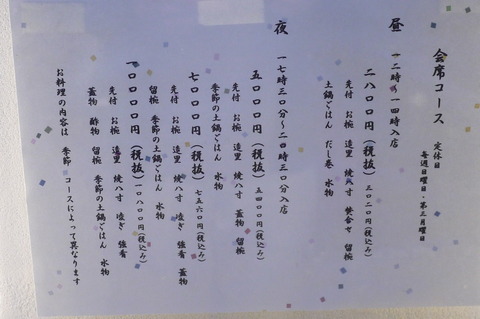 会席コース
定休日
毎週日曜日・第三月曜日
昼
十二時〜一四時入店
二八〇〇円（税抜）三〇二〇円（税込み）
先付 お椀 造里 焼八寸 焚合せ 留椀
土鍋ごはん だし巻 水物
夜
一七時三〇分〜二〇時三〇分入店
五〇〇〇円（税抜）五四〇〇円（税込み）
先付 お椀 造里 焼八寸 蓋物 留椀
季節の土鍋ごはん 水物
七〇〇〇円（税抜）七五六〇円（税込み）
先付 お椀 造里 焼八寸 凌ぎ 強肴 蓋物
留椀 季節の土鍋ごはん 水物
一〇〇〇〇円（税抜）一〇八〇〇円（税込み）
先付 お椀 造里 焼八寸 凌ぎ 強肴
蓋物 酢物 留椀 季節の土鍋ごはん 水物
お料理の内容は 季節 コースによって異なります